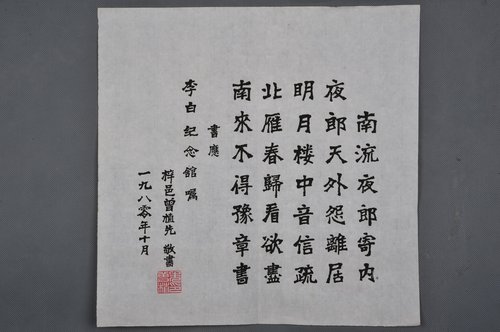 南流夜郎寄内
夜郎天外怨離居
明月楼中音信疏
北雁春歸看欲盡
南來不得豫章書
書應
李白紀念館囑
梓邑曾植先敬書
一九八零年十月